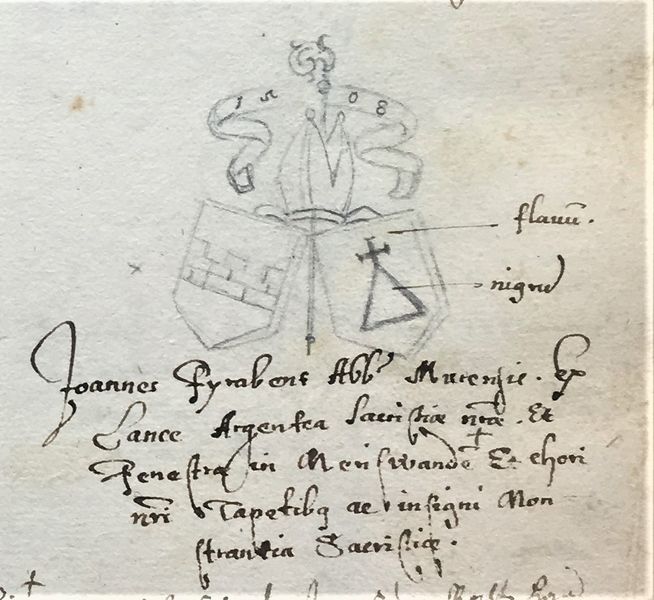 1508
flauū.
nigrū
Joannes Fyrabent Abbs Murensis. Ex
Lance Argentea Sacristiæ nræ. Et
Fenestra in Meriswande Et chori
nri Tapetibq ac insigni Mon
strantia Sacristiæ.